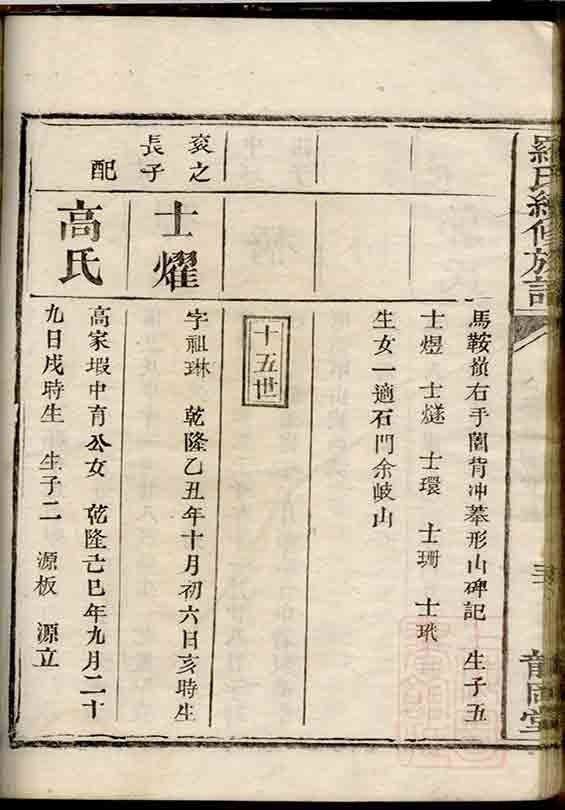 羅氏續修族譜
馬鞍嶺右手圍背冲墓形山碑記 生子五
士煜 士燧 士環 士珊 士玳
生女一適石門余岐山
十五世
袞之長子
士燿
字祖琳 乾隆乙丑年十月初六日亥時生
配
高氏
高家塅中育公女 乾隆己巳年九月二十
九日戌時生 生子二 源板 源立